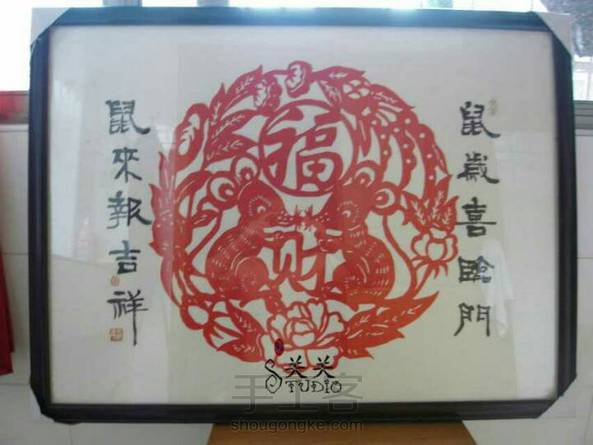 鼠歲喜臨門
福
财
鼠來報吉祥
美美
STUDIO
手工客
shougongke.com